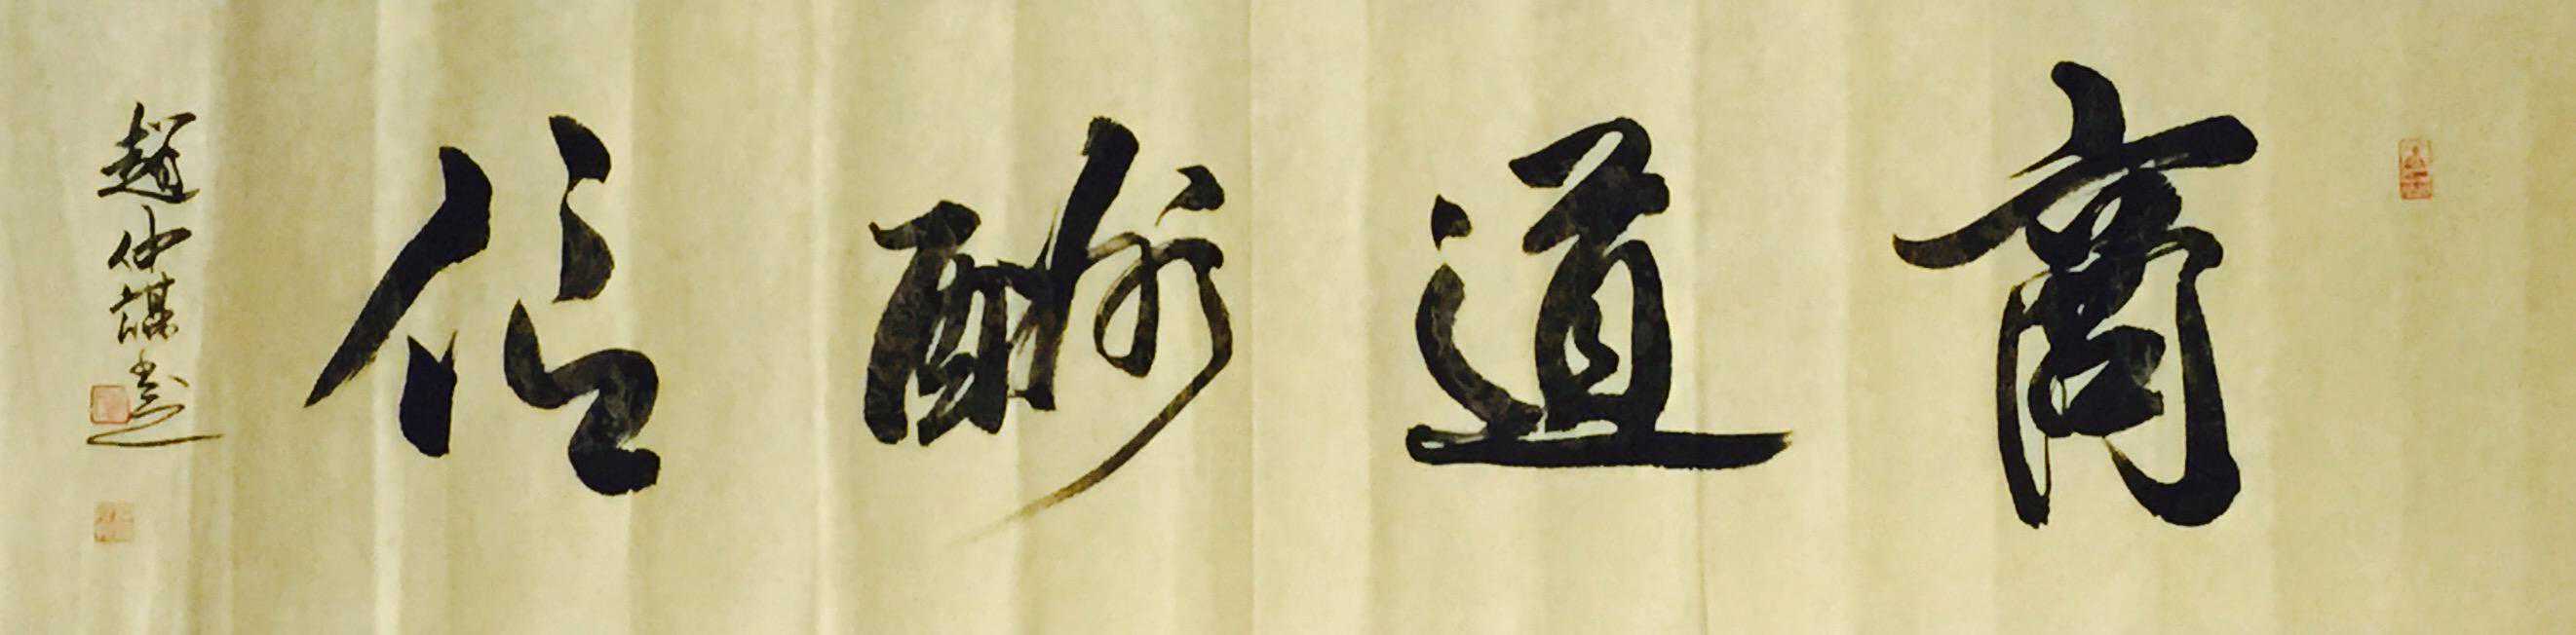 商道酬信
趙仲謀書